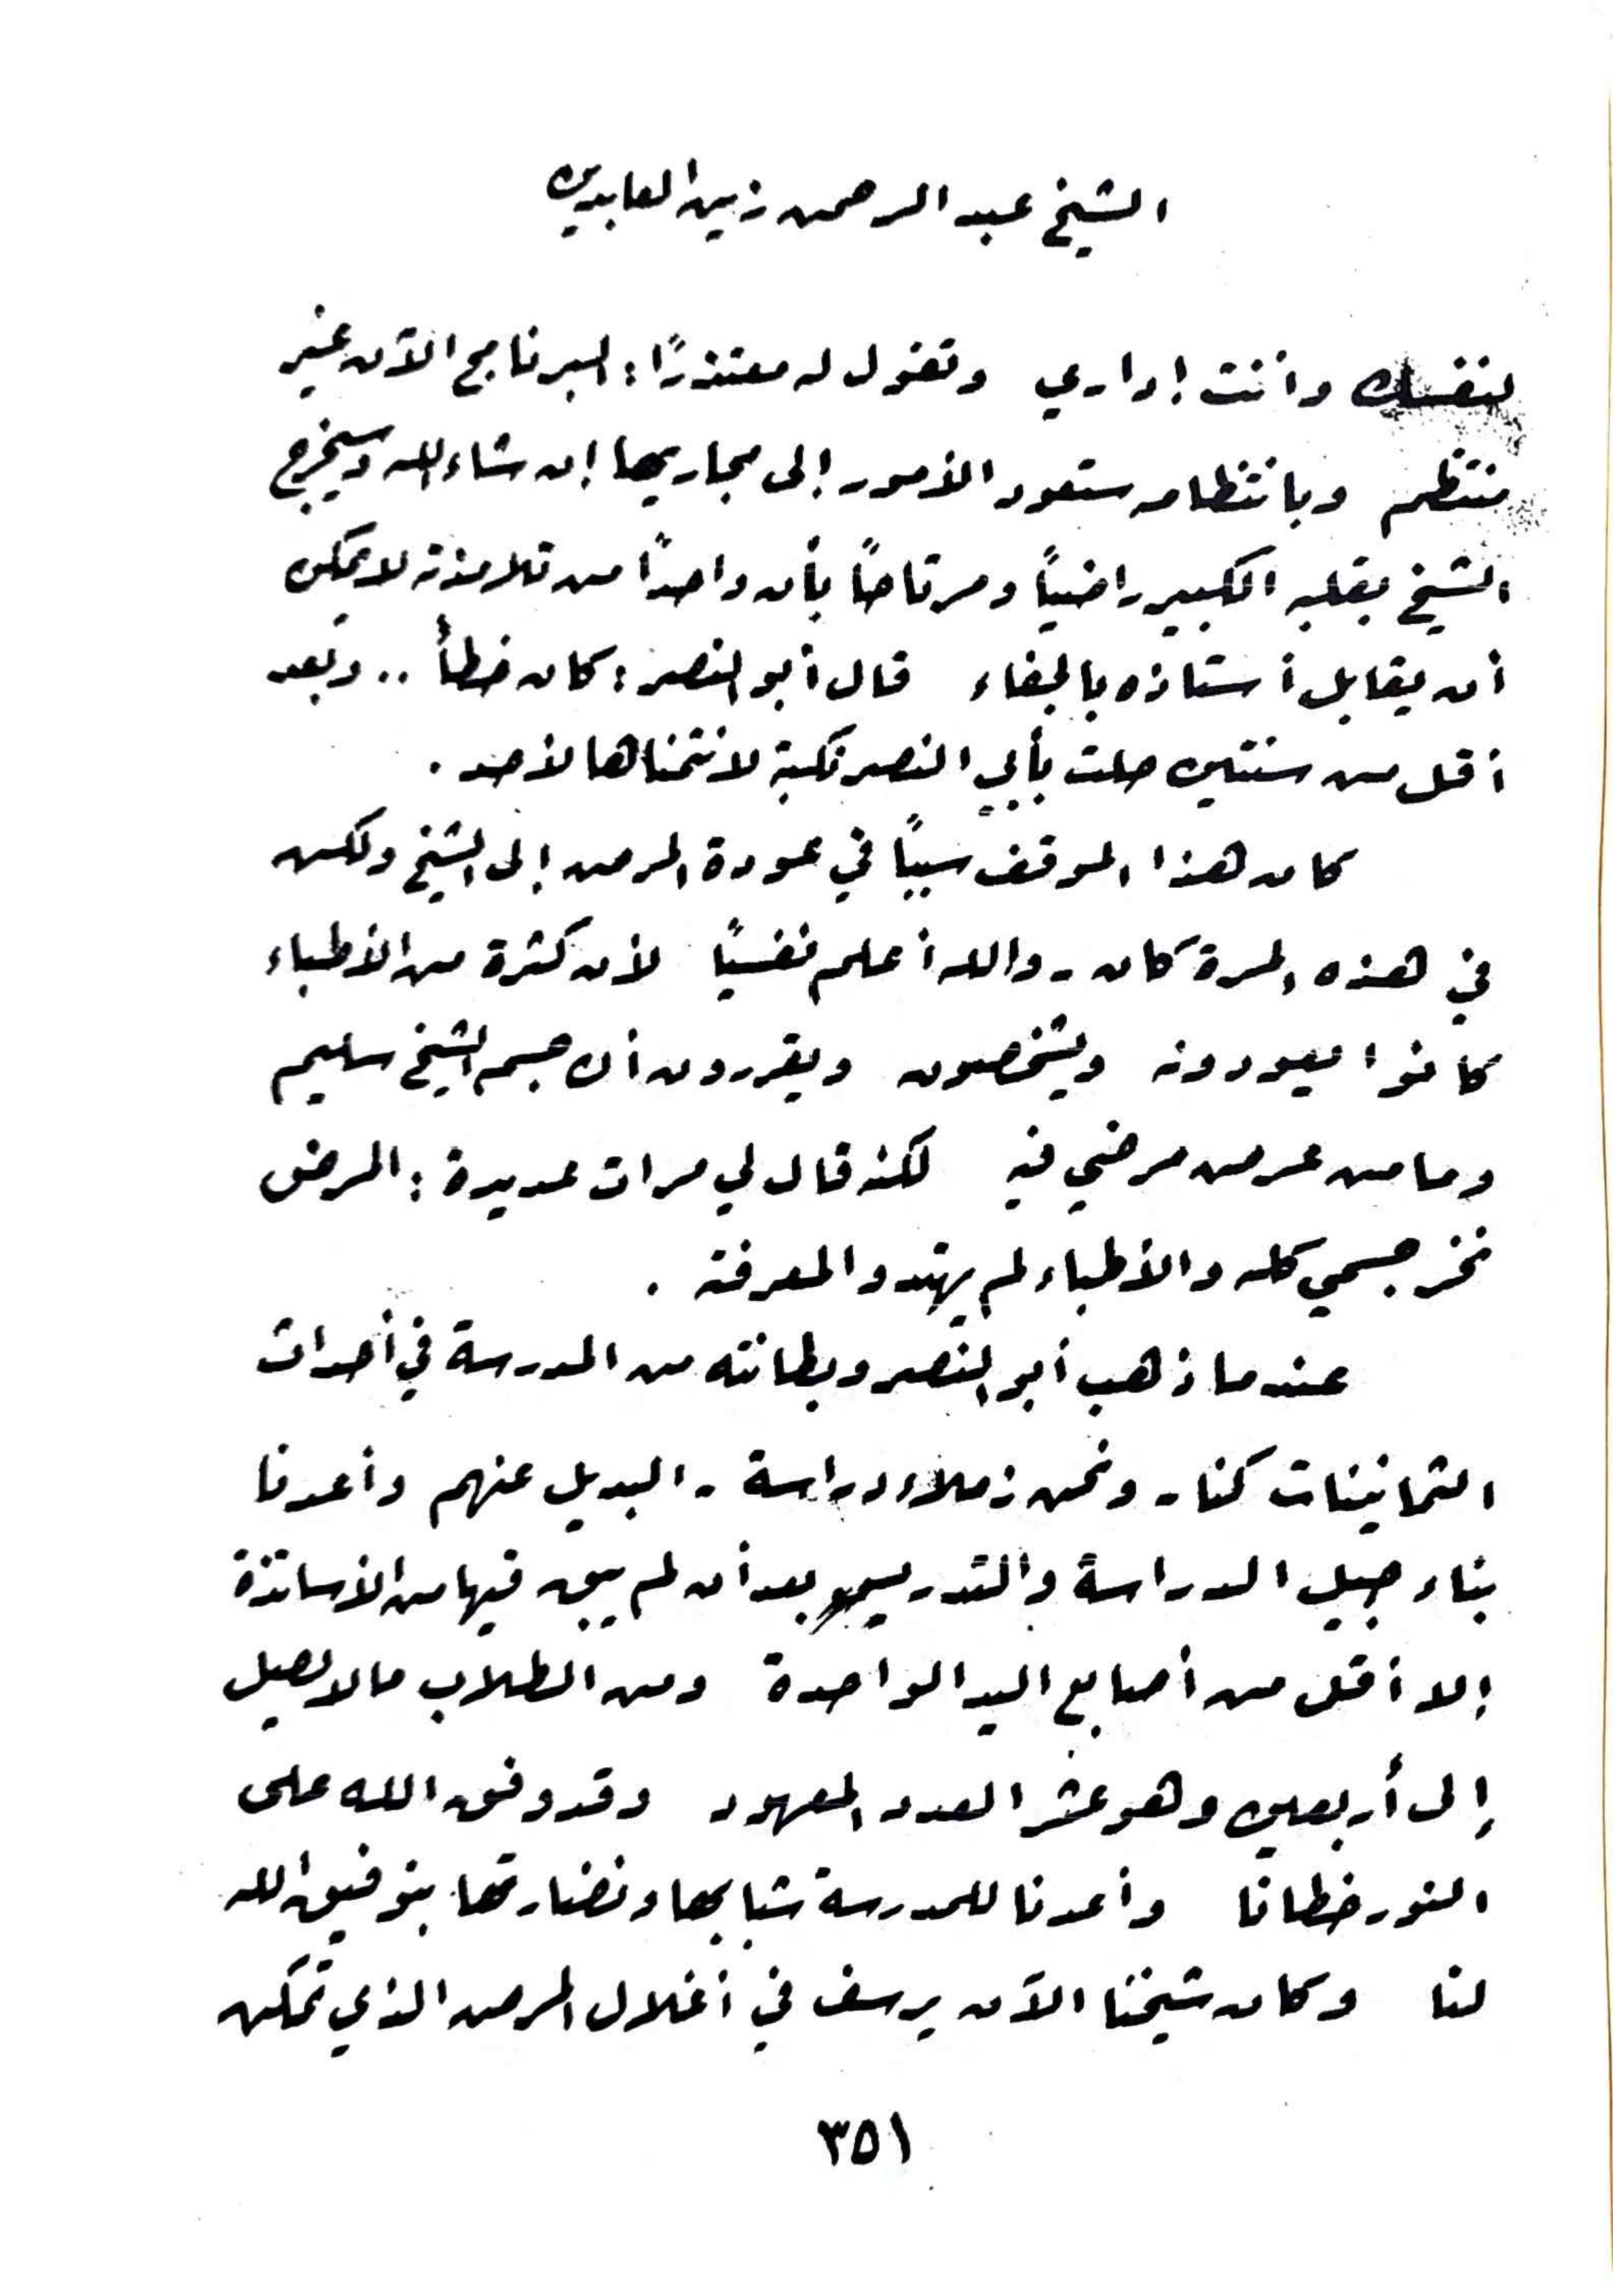 الشيخ عبد الرحمن زين العابدين
لنفسك وأنت إداري وتقول له معتذرًا: البرنامج الآن غير
منتظم وبانتظامه ستعود الأمور إلى مجاريها إن شاء الله وسيخرج
الشيخ بقلبه الكبير راضيًا ومرتاحًا بأن واحدًا من تلامذته لا يمكن
أن يقابل أستاذه بالجفاء قال أبو النصر: كان خطأ .. وبعد
أقل من سنتين حلت بأبي النصر نكبة لا نتمناها لأحد .
كان هذا الموقف سببًا في عودة المرض إلى الشيخ ولكن
في هذه المرة كان - والله أعلم نفسيًا لأن كثرة من الأطباء
كانوا يعودونه ويشخصون ويقررون أن جسم الشيخ سليم
وما من عرض مرضي فيه لكنه قال لي مرات عديدة: المرض
نخر جسمي كله والأطباء لم يهتدوا لمعرفته .
عندما ذهب أبو النصر وبطانته من المدرسة في أحداث
الثمانينات كنا - ونحن زملاء دراسة - البديل عنهم وأعدنا
بناء جيل الدراسة والتدريس بعد أن لم يبق فيها من الأساتذة
إلا أقل من أصابع اليد الواحدة ومن الطلاب ما لا يصل
إلى أربعين وهو عشر العدد المعهود وقد وفق الله على
النور خطانا وأعدنا للمدرسة شبابها ونضارتها بتوفيق الله
لنا وكان شيخنا الآن يرسف في أغلال المرض الذي تمكن
٣٥١